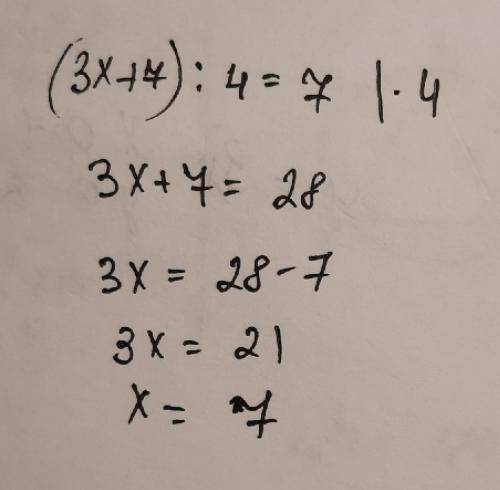 (3x+7) : 4 = 7 | · 4
3x+7 = 28
3x = 28-7
3x = 21
x = 7